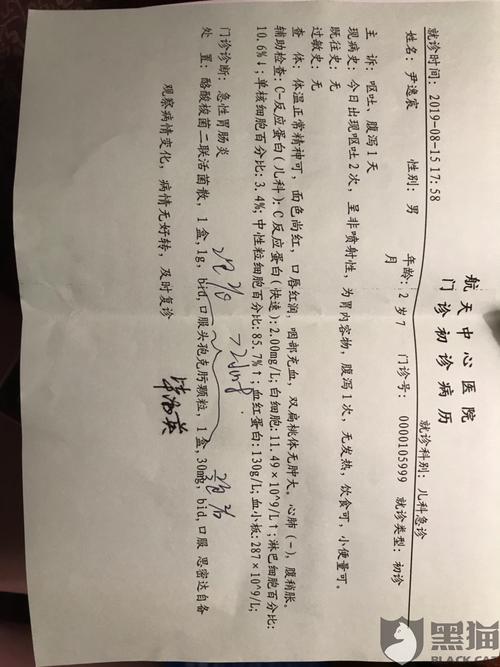 航天中心医院
门诊初诊病历
就诊科别：儿科急诊
就诊时间：2019-08-15 17:58
姓名：尹逸宸 性别：男 年龄：2岁7月 门诊号：0000105999 就诊类型：初诊
主 诉：呕吐、腹泻1天
现病史：今日出现呕吐2次，呈非喷射性，为胃内容物，腹泻1次，无发热，饮食可，小便量可。
既往史：无
过敏史：无
查 体：体温正常精神可，面色尚红，口唇红润，咽部充血，双扁桃体无肿大。心肺(-)，腹稍胀。
辅助检查：C-反应蛋白(儿科)：C反应蛋白(快速)：2.00mg/L；白细胞：11.49×10^9/L↑；淋巴细胞百分比：
10.6%↓；单核细胞百分比：3.4%；中性粒细胞百分比：85.7%↑；血红蛋白：130g/L；血小板：287×10^9/L；
门诊诊断：急性胃肠炎
处 置：酪酸梭菌二联活菌散，1盒，1g，bid，口服头孢克肟颗粒，1盒，30mg，bid，口服 思密达自备
观察病情变化，病情无好转，及时复诊
黑猫
BLACK CAT